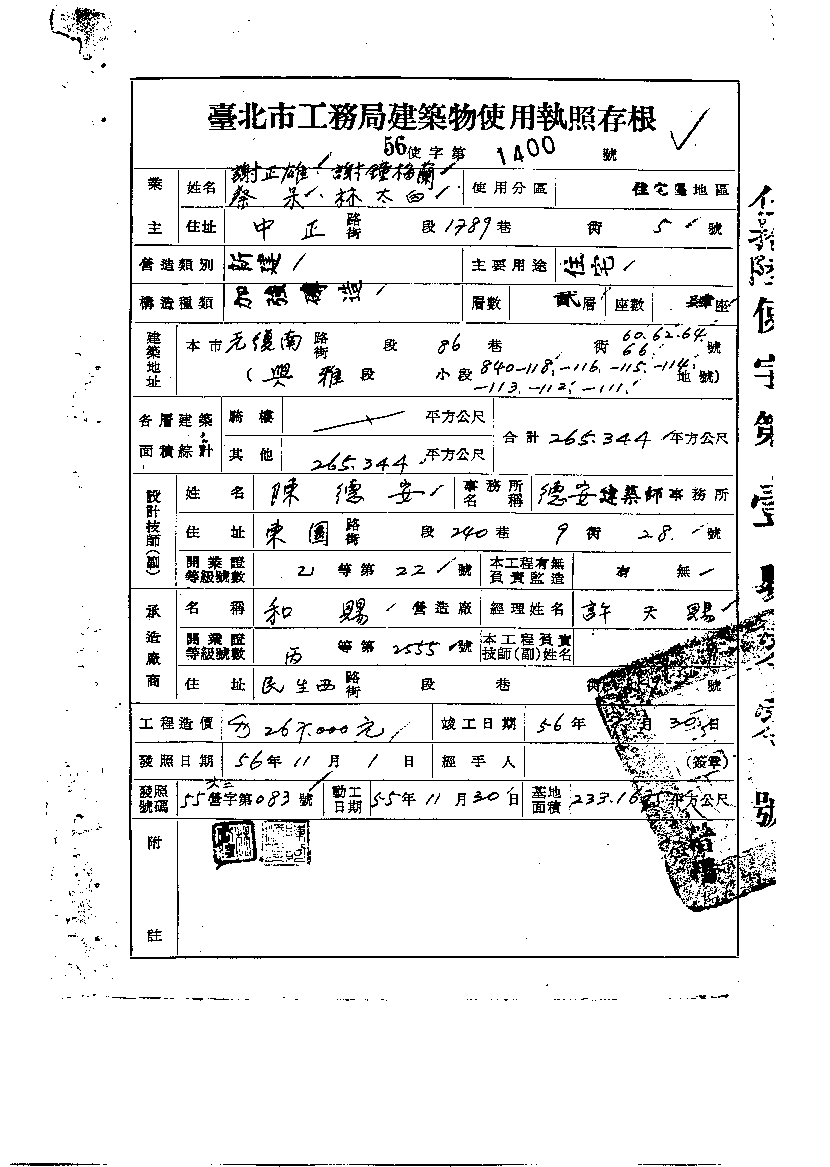 臺北市工務局建築物使用執照存根
56使字第1400號
業主 姓名 謝正雄 謝鍾梅蘭 蔡呆 林太白 使用分區 住宅區地區
住址 中正路街 段1789巷 衖5號
營造類別 新建 主要用途 住宅
構造種類 加強磚造 層數 貳層 座數 肆座
建築地址 本市光復南路街 段86巷 衖60.62.64.66.號
(興雅段 小段840-118.-116.-115.-114.-113.-112.-111.地號)
各層建築面積綜計 騎樓 平方公尺 合計265.344平方公尺
其他 265.344平方公尺
設計技師(副) 姓名 陳德安 事務所名稱 德安建築師事務所
住址 東園路街 段240巷 9衖28號
開業證等級號數 乙等第221號 本工程有無負責監造 有 無
承造廠商 名稱 和賜營造廠 經理姓名 許天賜
開業證等級號數 丙等第2555號 本工程負責技師(副)姓名
住址 民生西路街 段 巷 衖 號
工程造價 267.000元 竣工日期 56年 月30日
發照日期 56年11月1日 經手人 (簽章)
發照號碼 55營字第083號 動工日期 55年11月30日 基地面積 233.16 平方公尺
附註
使字第壹 號